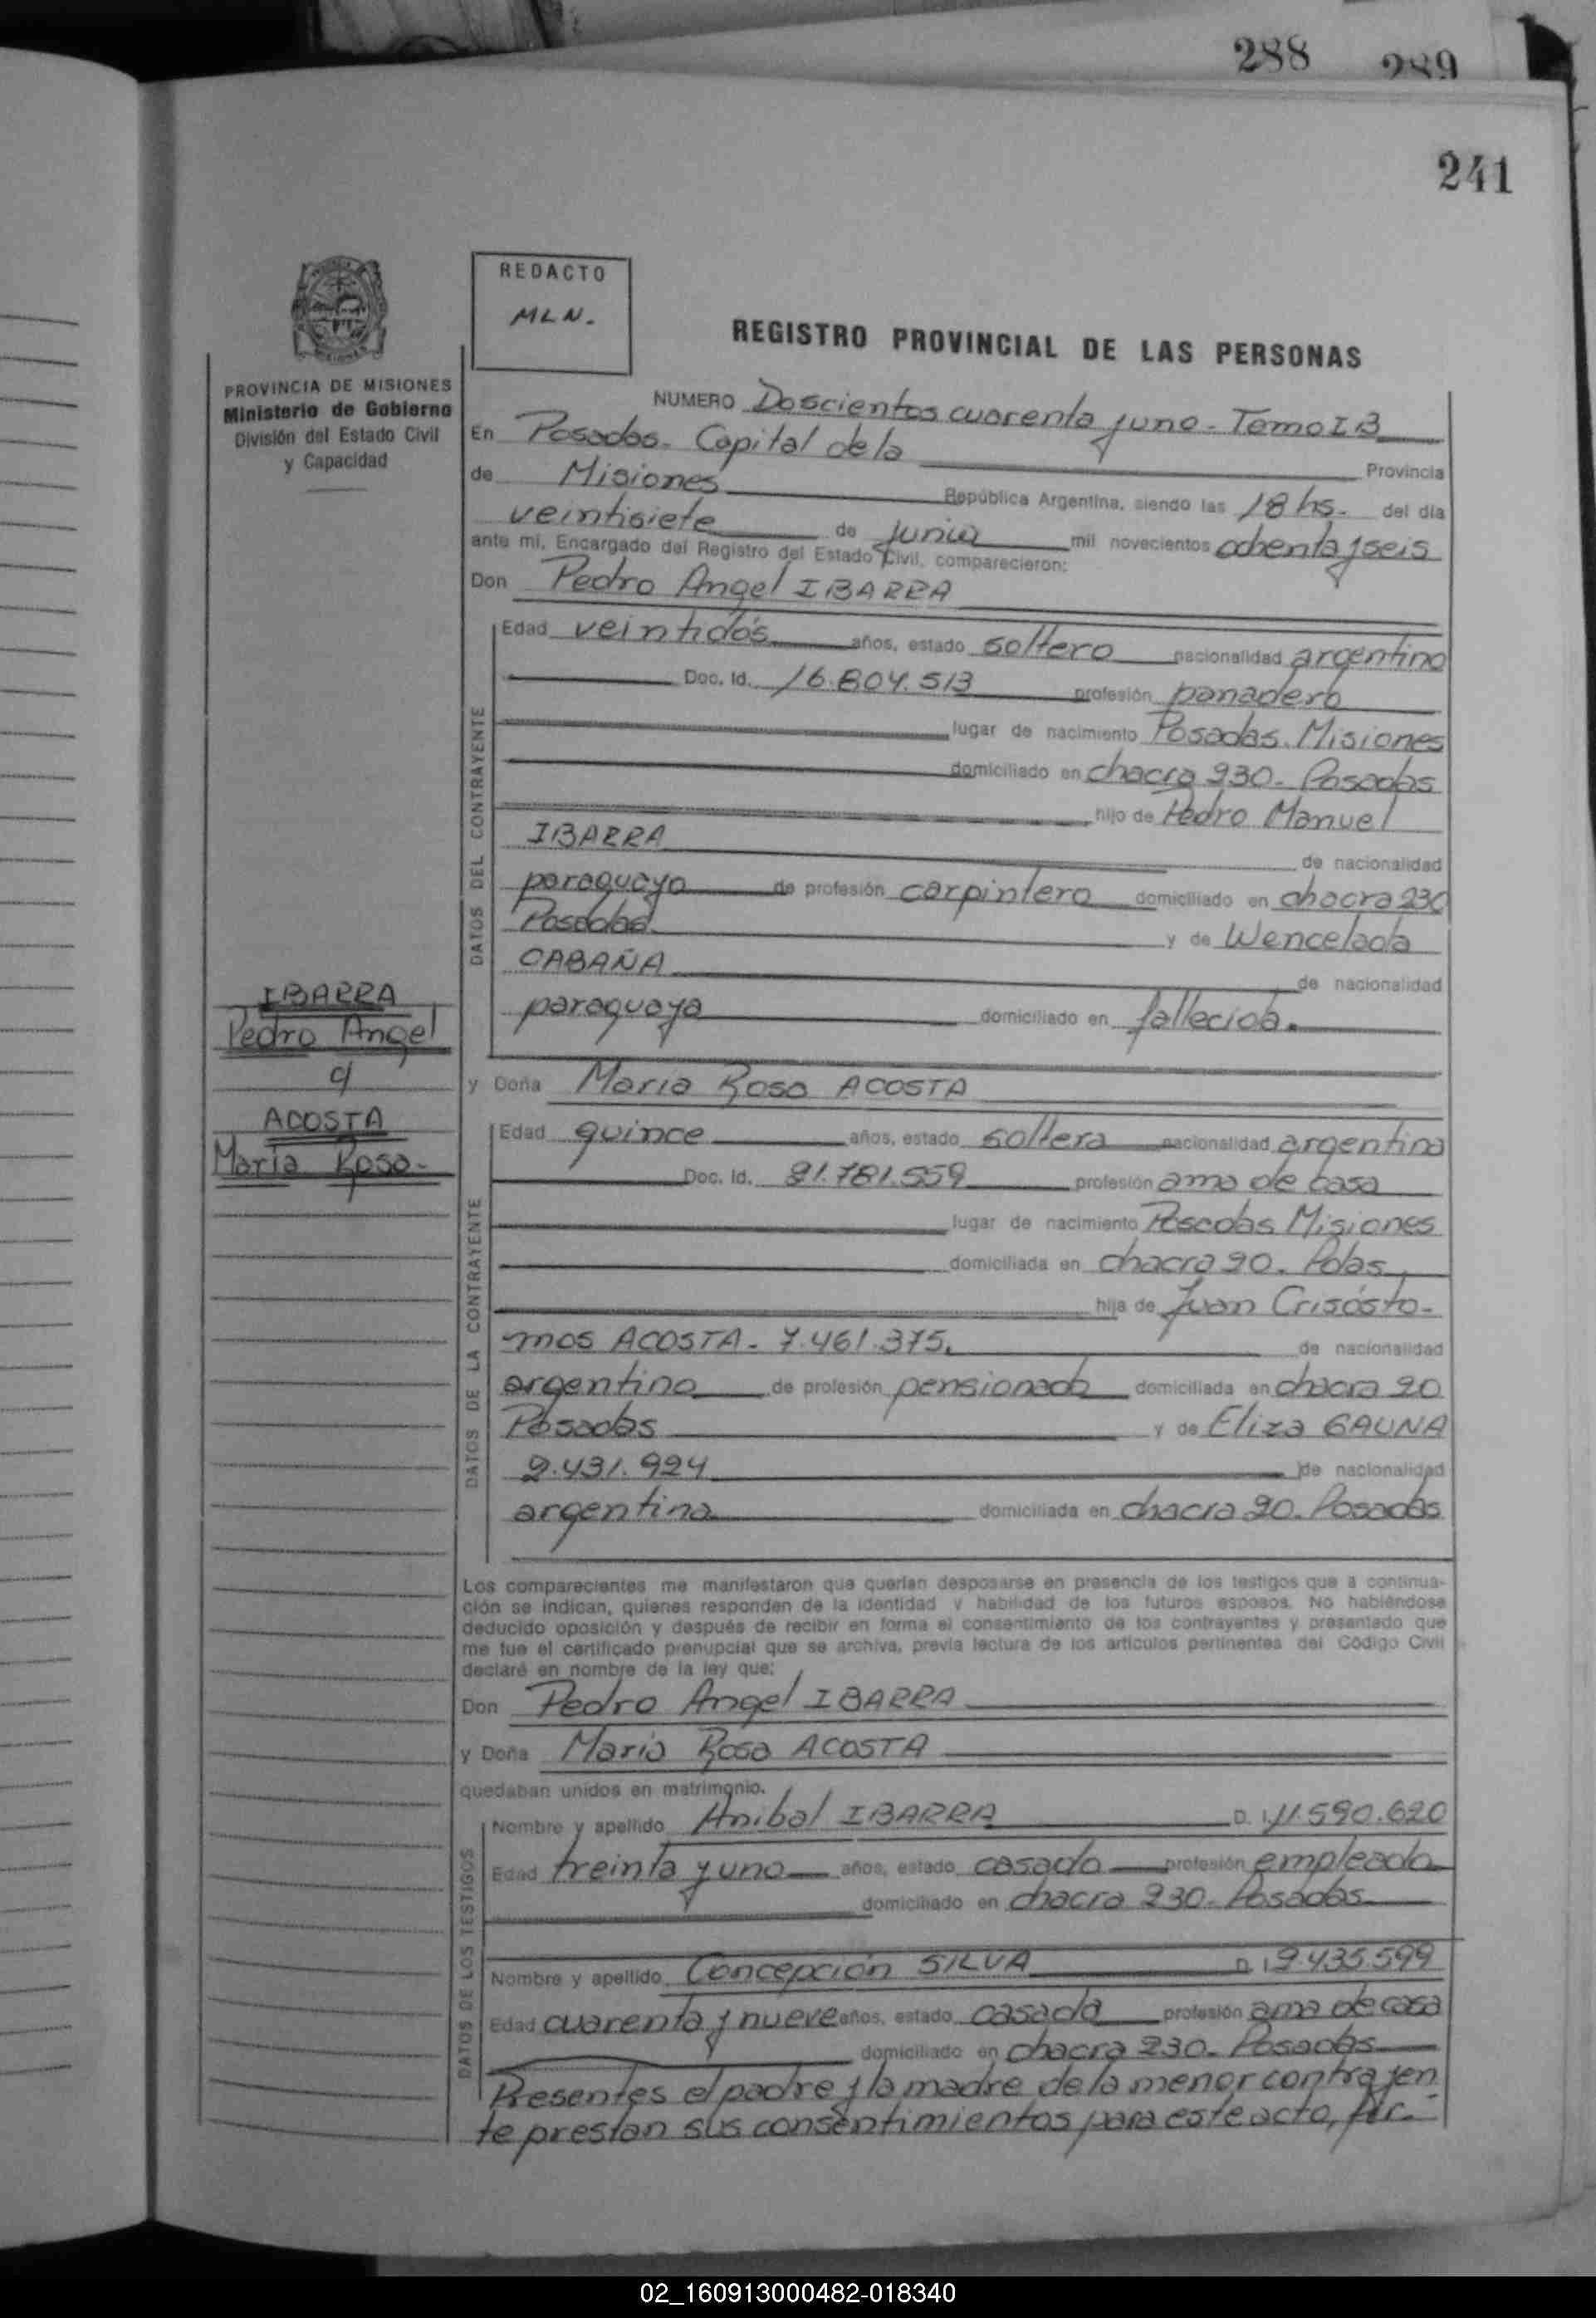 288 289
241
REDACTO
MLN.
REGISTRO PROVINCIAL DE LAS PERSONAS
PROVINCIA DE MISIONES
Ministerio de Gobierno
División del Estado Civil
y Capacidad
NUMERO Doscientos cuarenta y uno - Tomo I B
En Posadas. Capital de la Provincia
de Misiones República Argentina, siendo las 18 hs. del día
veintisiete de junio mil novecientos ochenta y seis
ante mi, Encargado del Registro del Estado Civil, comparecieron:
Don Pedro Angel IBARRA
DATOS DEL CONTRAYENTE
Edad veintidós años, estado soltero nacionalidad argentino
Doc. Id. 16.804.513 profesión panadero
lugar de nacimiento Posadas. Misiones
domiciliado en chacra 230. Posadas
hijo de Pedro Manuel
IBARRA de nacionalidad
paraguayo de profesión carpintero domiciliado en chacra 230
Posadas y de Wencelada
CABAÑA de nacionalidad
paraguaya domiciliado en fallecida.
IBARRA
Pedro Angel
c/
ACOSTA
María Rosa.-
y Doña María Rosa ACOSTA
DATOS DE LA CONTRAYENTE
Edad quince años, estado soltera nacionalidad argentina
Doc. Id. 21.781.559 profesión ama de casa
lugar de nacimiento Posadas Misiones
domiciliada en chacra 90. Pdas,
hija de Juan Crisósto-
mos ACOSTA - 7.461.375. de nacionalidad
argentino de profesión pensionado domiciliada en chacra 90
Posadas y de Eliza GAUNA
2.431.924 de nacionalidad
argentina domiciliada en chacra 90. Posadas
Los comparecientes me manifestaron que querían desposarse en presencia de los testigos que a continua-
ción se indican, quienes responden de la identidad y habilidad de los futuros esposos. No habiéndose
deducido oposición y después de recibir en forma el consentimiento de los contrayentes y presentado que
me fue el certificado prenupcial que se archiva, previa lectura de los artículos pertinentes del Código Civil
declaré en nombre de la ley que:
Don Pedro Angel IBARRA
y Doña María Rosa ACOSTA
quedaban unidos en matrimonio.
DATOS DE LOS TESTIGOS
Nombre y apellido Anibal IBARRA D. I. 11.590.620
Edad treinta y uno años, estado casado profesión empleado
domiciliado en chacra 230. Posadas
Nombre y apellido Concepción SILVA D. I. 9.435.599
Edad cuarenta y nueve años, estado casada profesión ama de casa
domiciliado en chacra 230. Posadas
Presentes el padre y la madre de la menor contrayen
te prestan sus consentimientos para este acto,
02_160913000482-018340